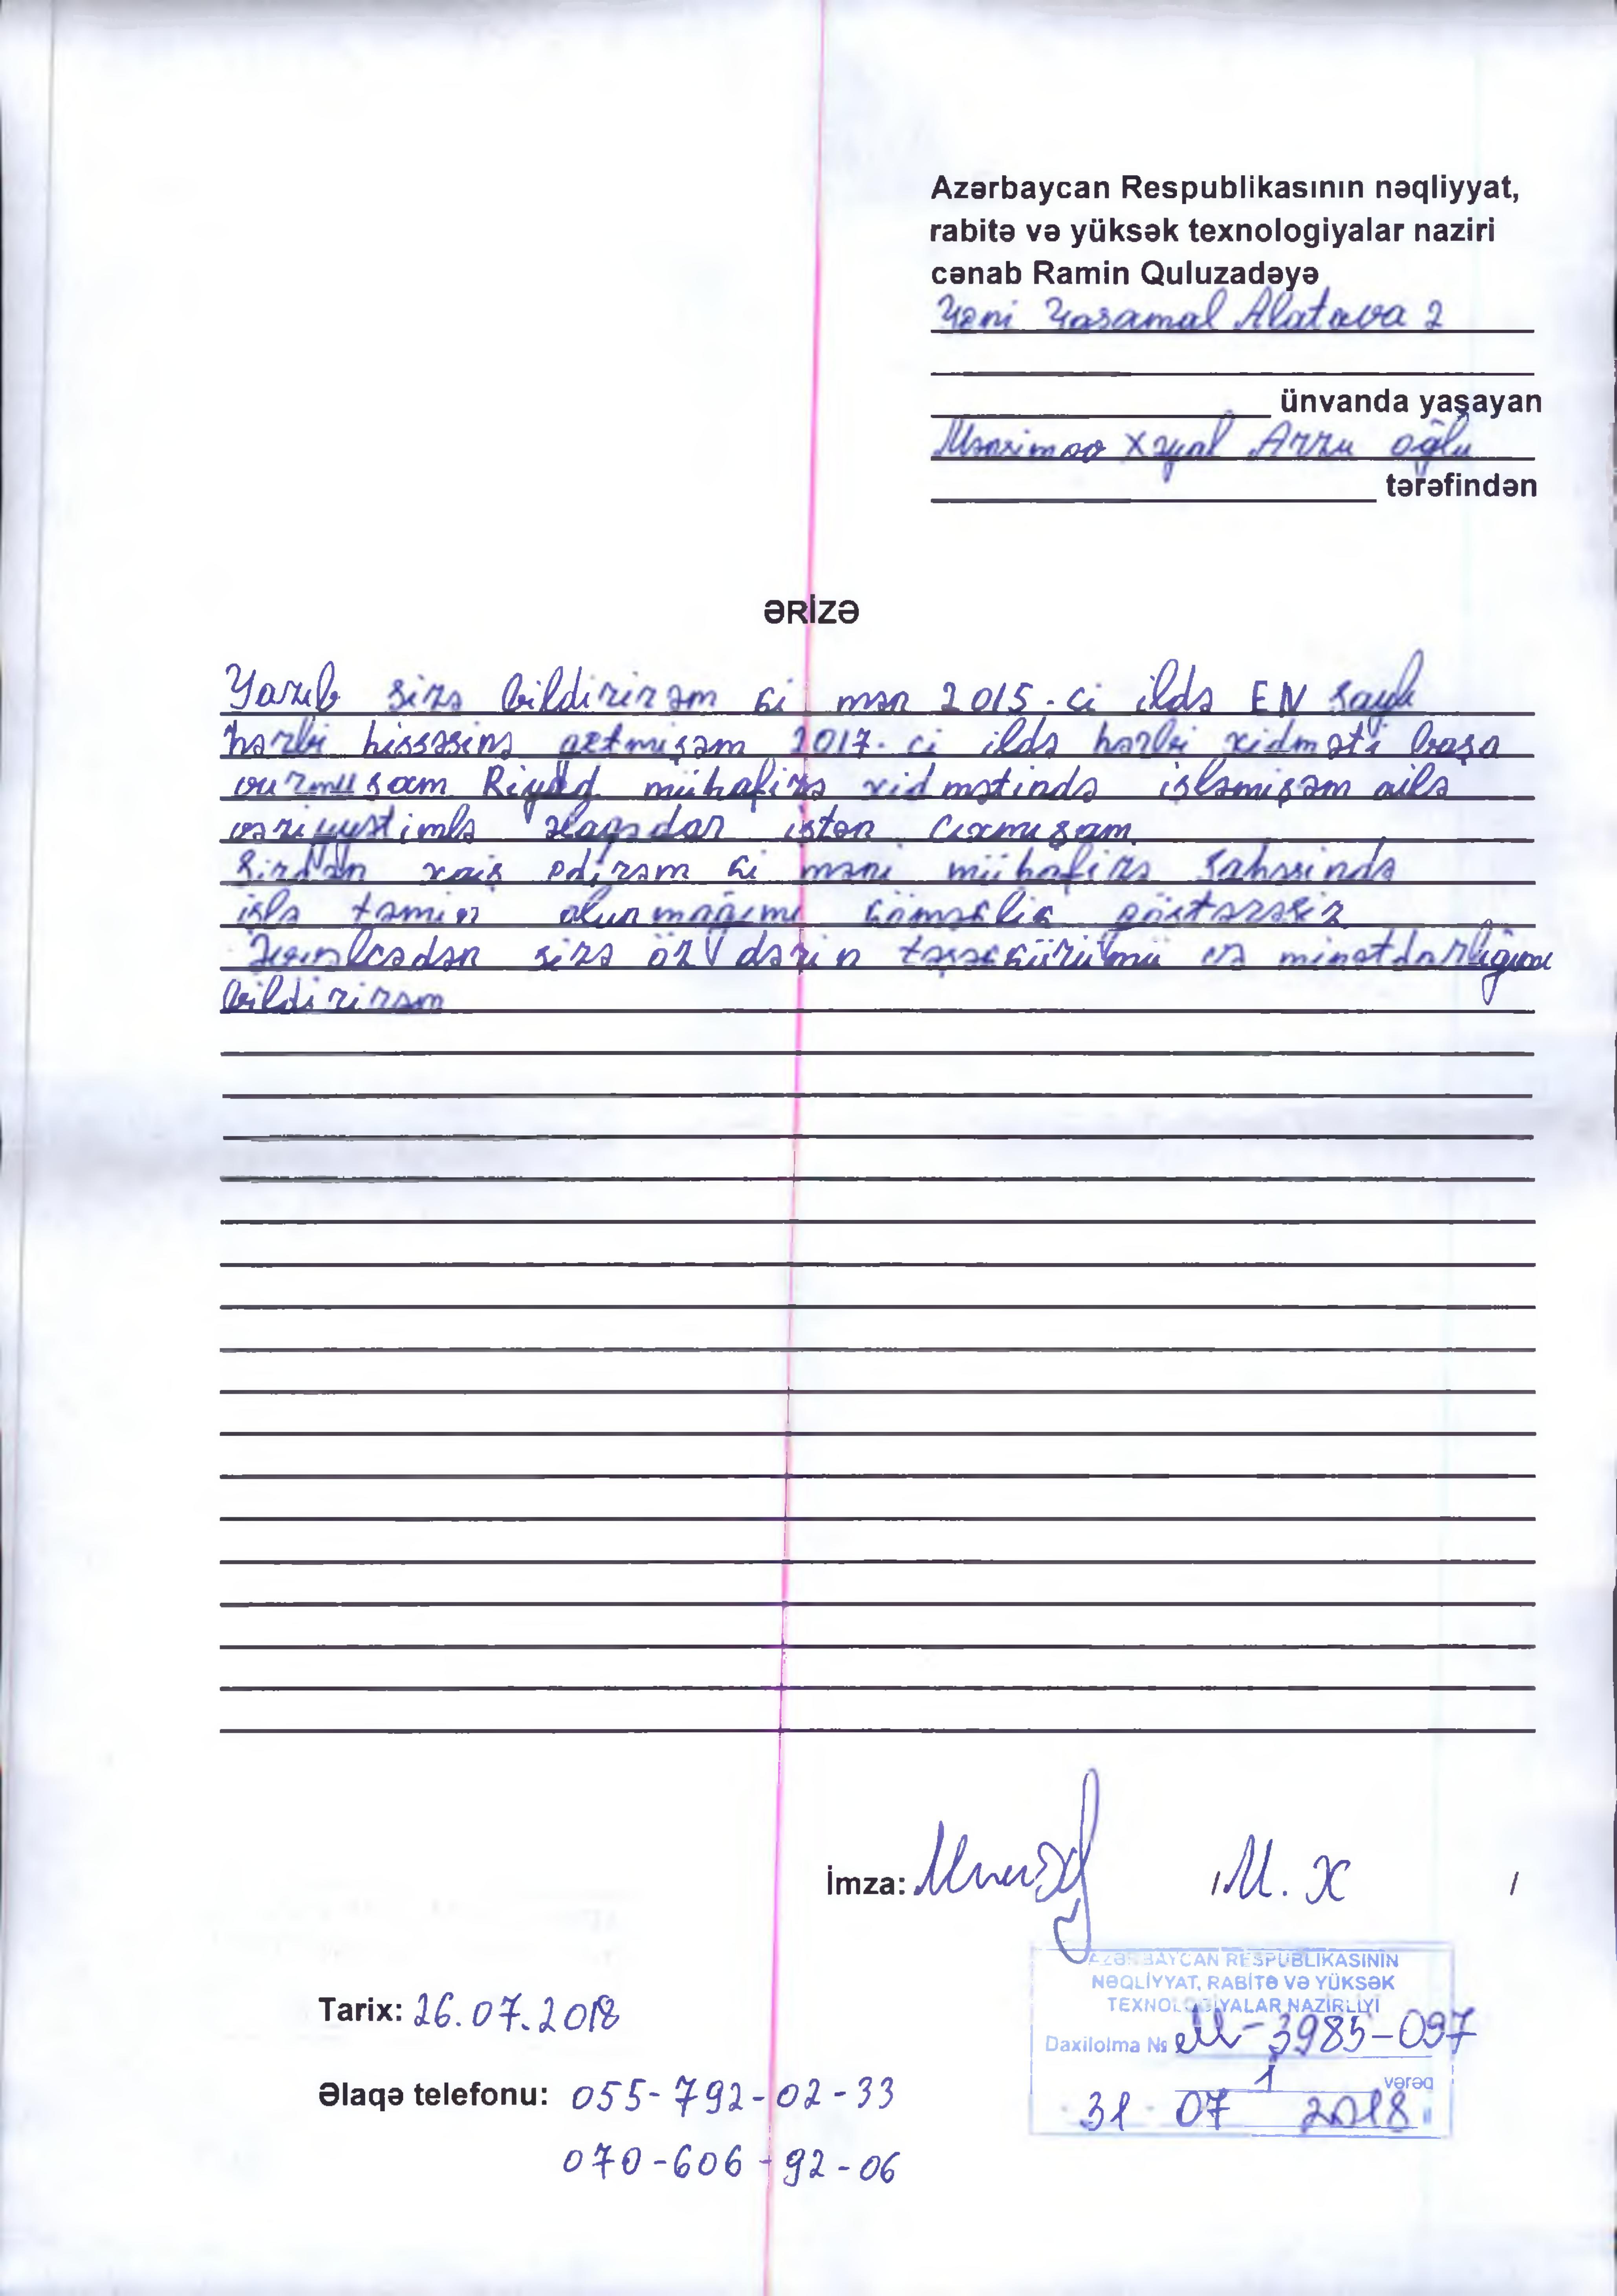 Azərbaycan Respublikasının nəqliyyat,
rabitə və yüksək texnologiyalar naziri
cənab Ramin Quluzadəyə
Yeni Yasamal Alatava 2
ünvanda yaşayan
Xəyal Arzu oğlu
tərəfindən
ƏRİZƏ
Yazıb sizə bildirirəm ki mən 2015-ci ildə EN saylı
hərbi hissəsinə getmişəm 2017-ci ildə hərbi xidməti başa
vurmuşam Riyad mühafizə xidmətində işləmişəm ailə
vəziyyətimlə əlaqədar iştən cıxmışam
Sizdən xaiş edirəm ki məni mühafizə sahəsində
işlə təmin olunmağımı köməklik göstərəsiz
sizə öz dərin təşəkkürümü və minətdarlığımı
bildirirəm
İmza: M. X /
AZƏRBAYCAN RESPUBLİKASININ
NƏQLİYYAT, RABİTƏ VƏ YÜKSƏK
TEXNOLOGİYALAR NAZİRLİYİ
Tarix: 26.07.2018
Daxilolma № M-3985-097
1 vərəq
31 07 2018
Əlaqə telefonu: 055-792-02-33
070-606-92-06